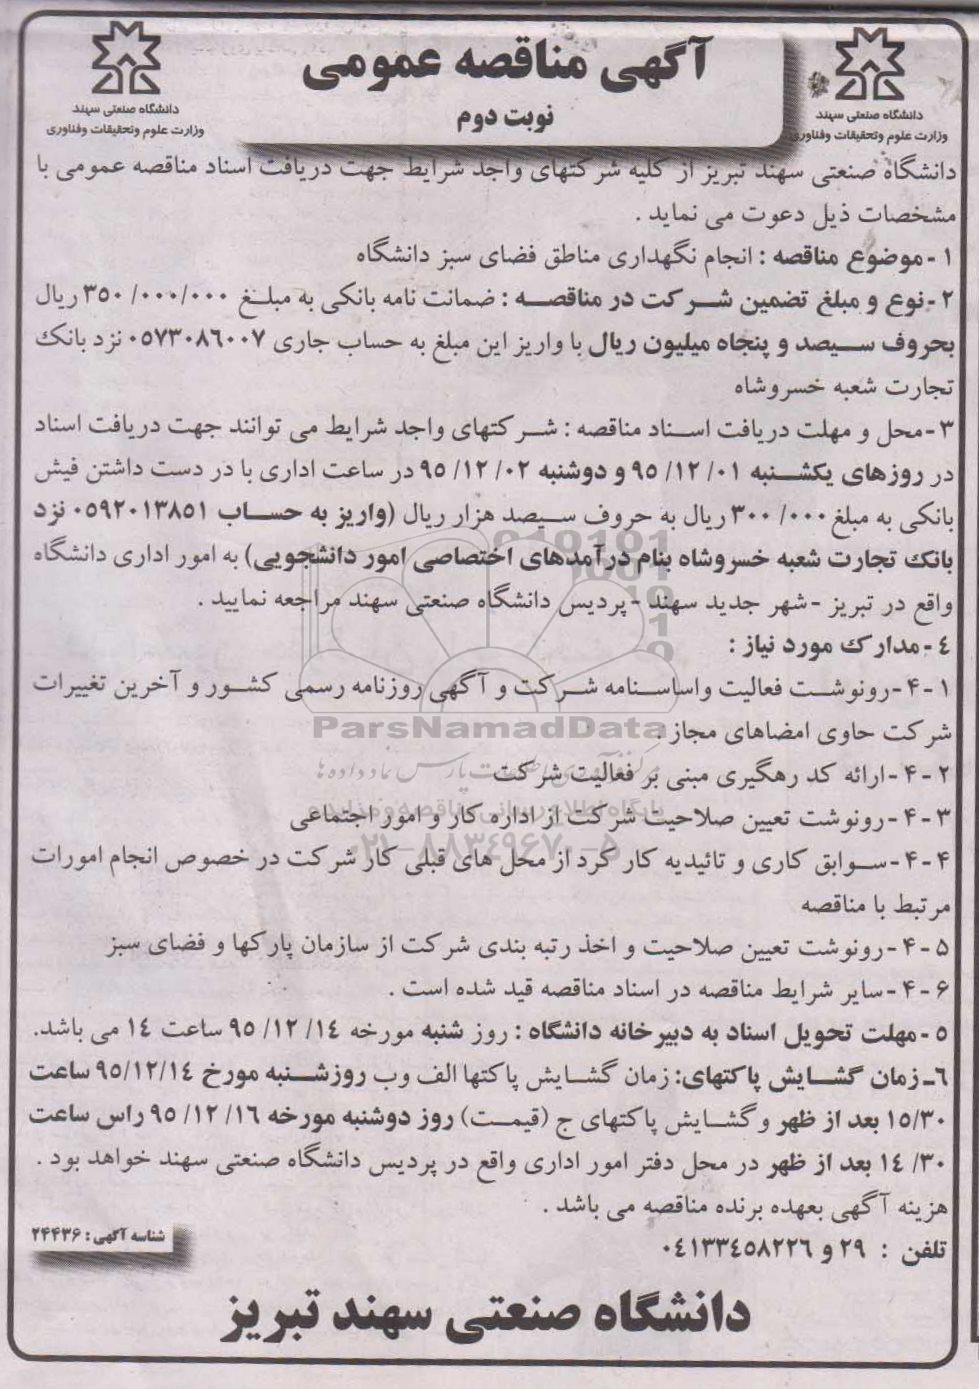 آگهی مناقصه عمومی
نوبت دوم
دانشگاه صنعتی سهند
وزارت علوم وتحقیقات وفناوری
دانشگاه صنعتی سهند
وزارت علوم وتحقیقات وفناوری
دانشگاه صنعتی سهند تبریز از کلیه شرکتهای واجد شرایط جهت دریافت اسناد مناقصه عمومی با
مشخصات ذیل دعوت می نماید .
۱ - موضوع مناقصه : انجام نگهداری مناطق فضای سبز دانشگاه
۲ - نوع و مبلغ تضمین شرکت در مناقصه : ضمانت نامه بانکی به مبلغ ۳۵۰/۰۰۰/۰۰۰ ریال
بحروف سیصد و پنجاه میلیون ریال با واریز این مبلغ به حساب جاری ۰۵۷۳۰۸۶۰۰۷ نزد بانک
تجارت شعبه خسروشاه
۳ - محل و مهلت دریافت اسناد مناقصه : شرکتهای واجد شرایط می توانند جهت دریافت اسناد
در روزهای یکشنبه ۹۵/۱۲/۰۱ و دوشنبه ۹۵/۱۲/۰۲ در ساعت اداری با در دست داشتن فیش
بانکی به مبلغ ۳۰۰/۰۰۰ ریال به حروف سیصد هزار ریال (واریز به حساب ۰۵۹۲۰۱۳۸۵۱ نزد
بانک تجارت شعبه خسروشاه بنام درآمدهای اختصاصی امور دانشجویی) به امور اداری دانشگاه
واقع در تبریز - شهر جدید سهند - پردیس دانشگاه صنعتی سهند مراجعه نمایید .
۴ - مدارک مورد نیاز :
۱ - ۴ - رونوشت فعالیت واساسنامه شرکت و آگهی روزنامه رسمی کشور و آخرین تغییرات
شرکت حاوی امضاهای مجاز .
ParsNamadData
۲ - ۴ - ارائه کد رهگیری مبنی بر فعالیت شرکت
پایگاه اطلاع رسانی مناقصه و مزایده
۳ - ۴ - رونوشت تعیین صلاحیت شرکت از اداره کار و امور اجتماعی
۰۲۱-۸۸۳۴۹۶۷۰-۵
۴ - ۴ - سوابق کاری و تائیدیه کار کرد از محل های قبلی کار شرکت در خصوص انجام امورات
مرتبط با مناقصه
۵ - ۴ - رونوشت تعیین صلاحیت و اخذ رتبه بندی شرکت از سازمان پارکها و فضای سبز
۶ - ۴ - سایر شرایط مناقصه در اسناد مناقصه قید شده است .
۵ - مهلت تحویل اسناد به دبیرخانه دانشگاه : روز شنبه مورخه ۹۵/۱۲/۱۴ ساعت ۱۴ می باشد.
۶ـ زمان گشایش پاکتهای: زمان گشایش پاکتها الف وب روزشنبه مورخ ۹۵/۱۲/۱۴ ساعت
۱۵/۳۰ بعد از ظهر و گشایش پاکتهای ج (قیمت) روز دوشنبه مورخه ۹۵/۱۲/۱۶ راس ساعت
۱۴/۳۰ بعد از ظهر در محل دفتر امور اداری واقع در پردیس دانشگاه صنعتی سهند خواهد بود .
هزینه آگهی بعهده برنده مناقصه می باشد .
تلفن : ۲۹ و ۰۴۱۳۳۴۵۸۲۲۶
شناسه آگهی : ۲۴۴۳۶
دانشگاه صنعتی سهند تبریز